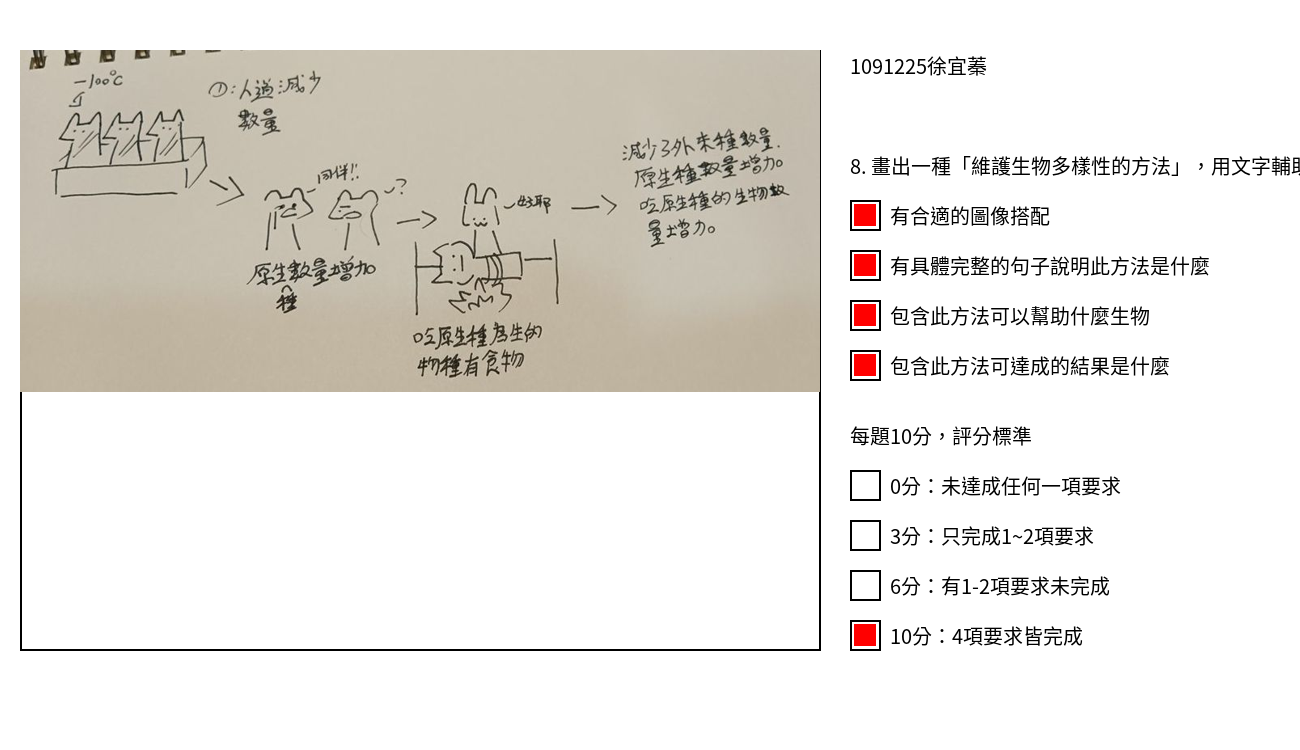 -100℃
①:人道減少
數量
同伴!!
?
原生數量增加
種
好耶
吃原生種為生的
物種有食物
減少了外來種數量.
原生種數量增加。
吃原生種的生物數
量增加。
1091225徐宜蓁
8. 畫出一種「維護生物多樣性的方法」，用文字輔助
有合適的圖像搭配
有具體完整的句子說明此方法是什麼
包含此方法可以幫助什麼生物
包含此方法可達成的結果是什麼
每題10分，評分標準
0分：未達成任何一項要求
3分：只完成1~2項要求
6分：有1-2項要求未完成
10分：4項要求皆完成